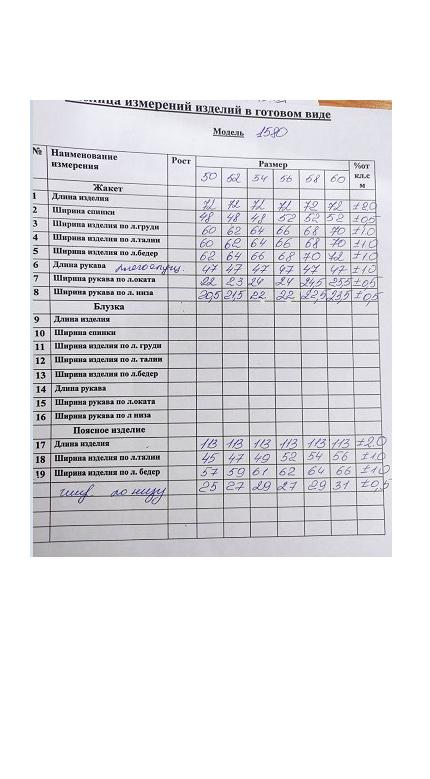 измерений изделий в готовом виде
Модель 1580
№ Наименование измерения Рост Размер %от кл.с м
50 52 54 56 58 60
Жакет
1 Длина изделия 72 72 72 72 72 72 ±2.0
2 Ширина спинки 48 48 48 52 52 52 ±0,5
3 Ширина изделия по л.груди 60 62 64 66 68 70 ±1.0
4 Ширина изделия по л.талии 60 62 64 66 68 70 ±1.0
5 Ширина изделия по л.бедер 62 64 66 68 70 72 ±1.0
6 Длина рукава 47 47 47 47 47 47 ±1.0
7 Ширина рукава по л.оката 22 23 24 24 24,5 25,5 ±0,5
8 Ширина рукава по л. низа 20,5 21,5 22 22 22,5 23,5 ±0,5
Блузка
9 Длина изделия
10 Ширина спинки
11 Ширина изделия по л. груди
12 Ширина изделия по л. талии
13 Ширина изделия по л.бедер
14 Длина рукава
15 Ширина рукава по л.оката
16 Ширина рукава по л низа
Поясное изделие
17 Длина изделия 113 113 113 113 113 113 ±2.0
18 Ширина изделия по л.талии 45 47 49 52 54 56 ±1.0
19 Ширина изделия по л. бедер 57 59 61 62 64 66 ±1.0
шир. по низу 25 27 29 27 29 31 ±0,5